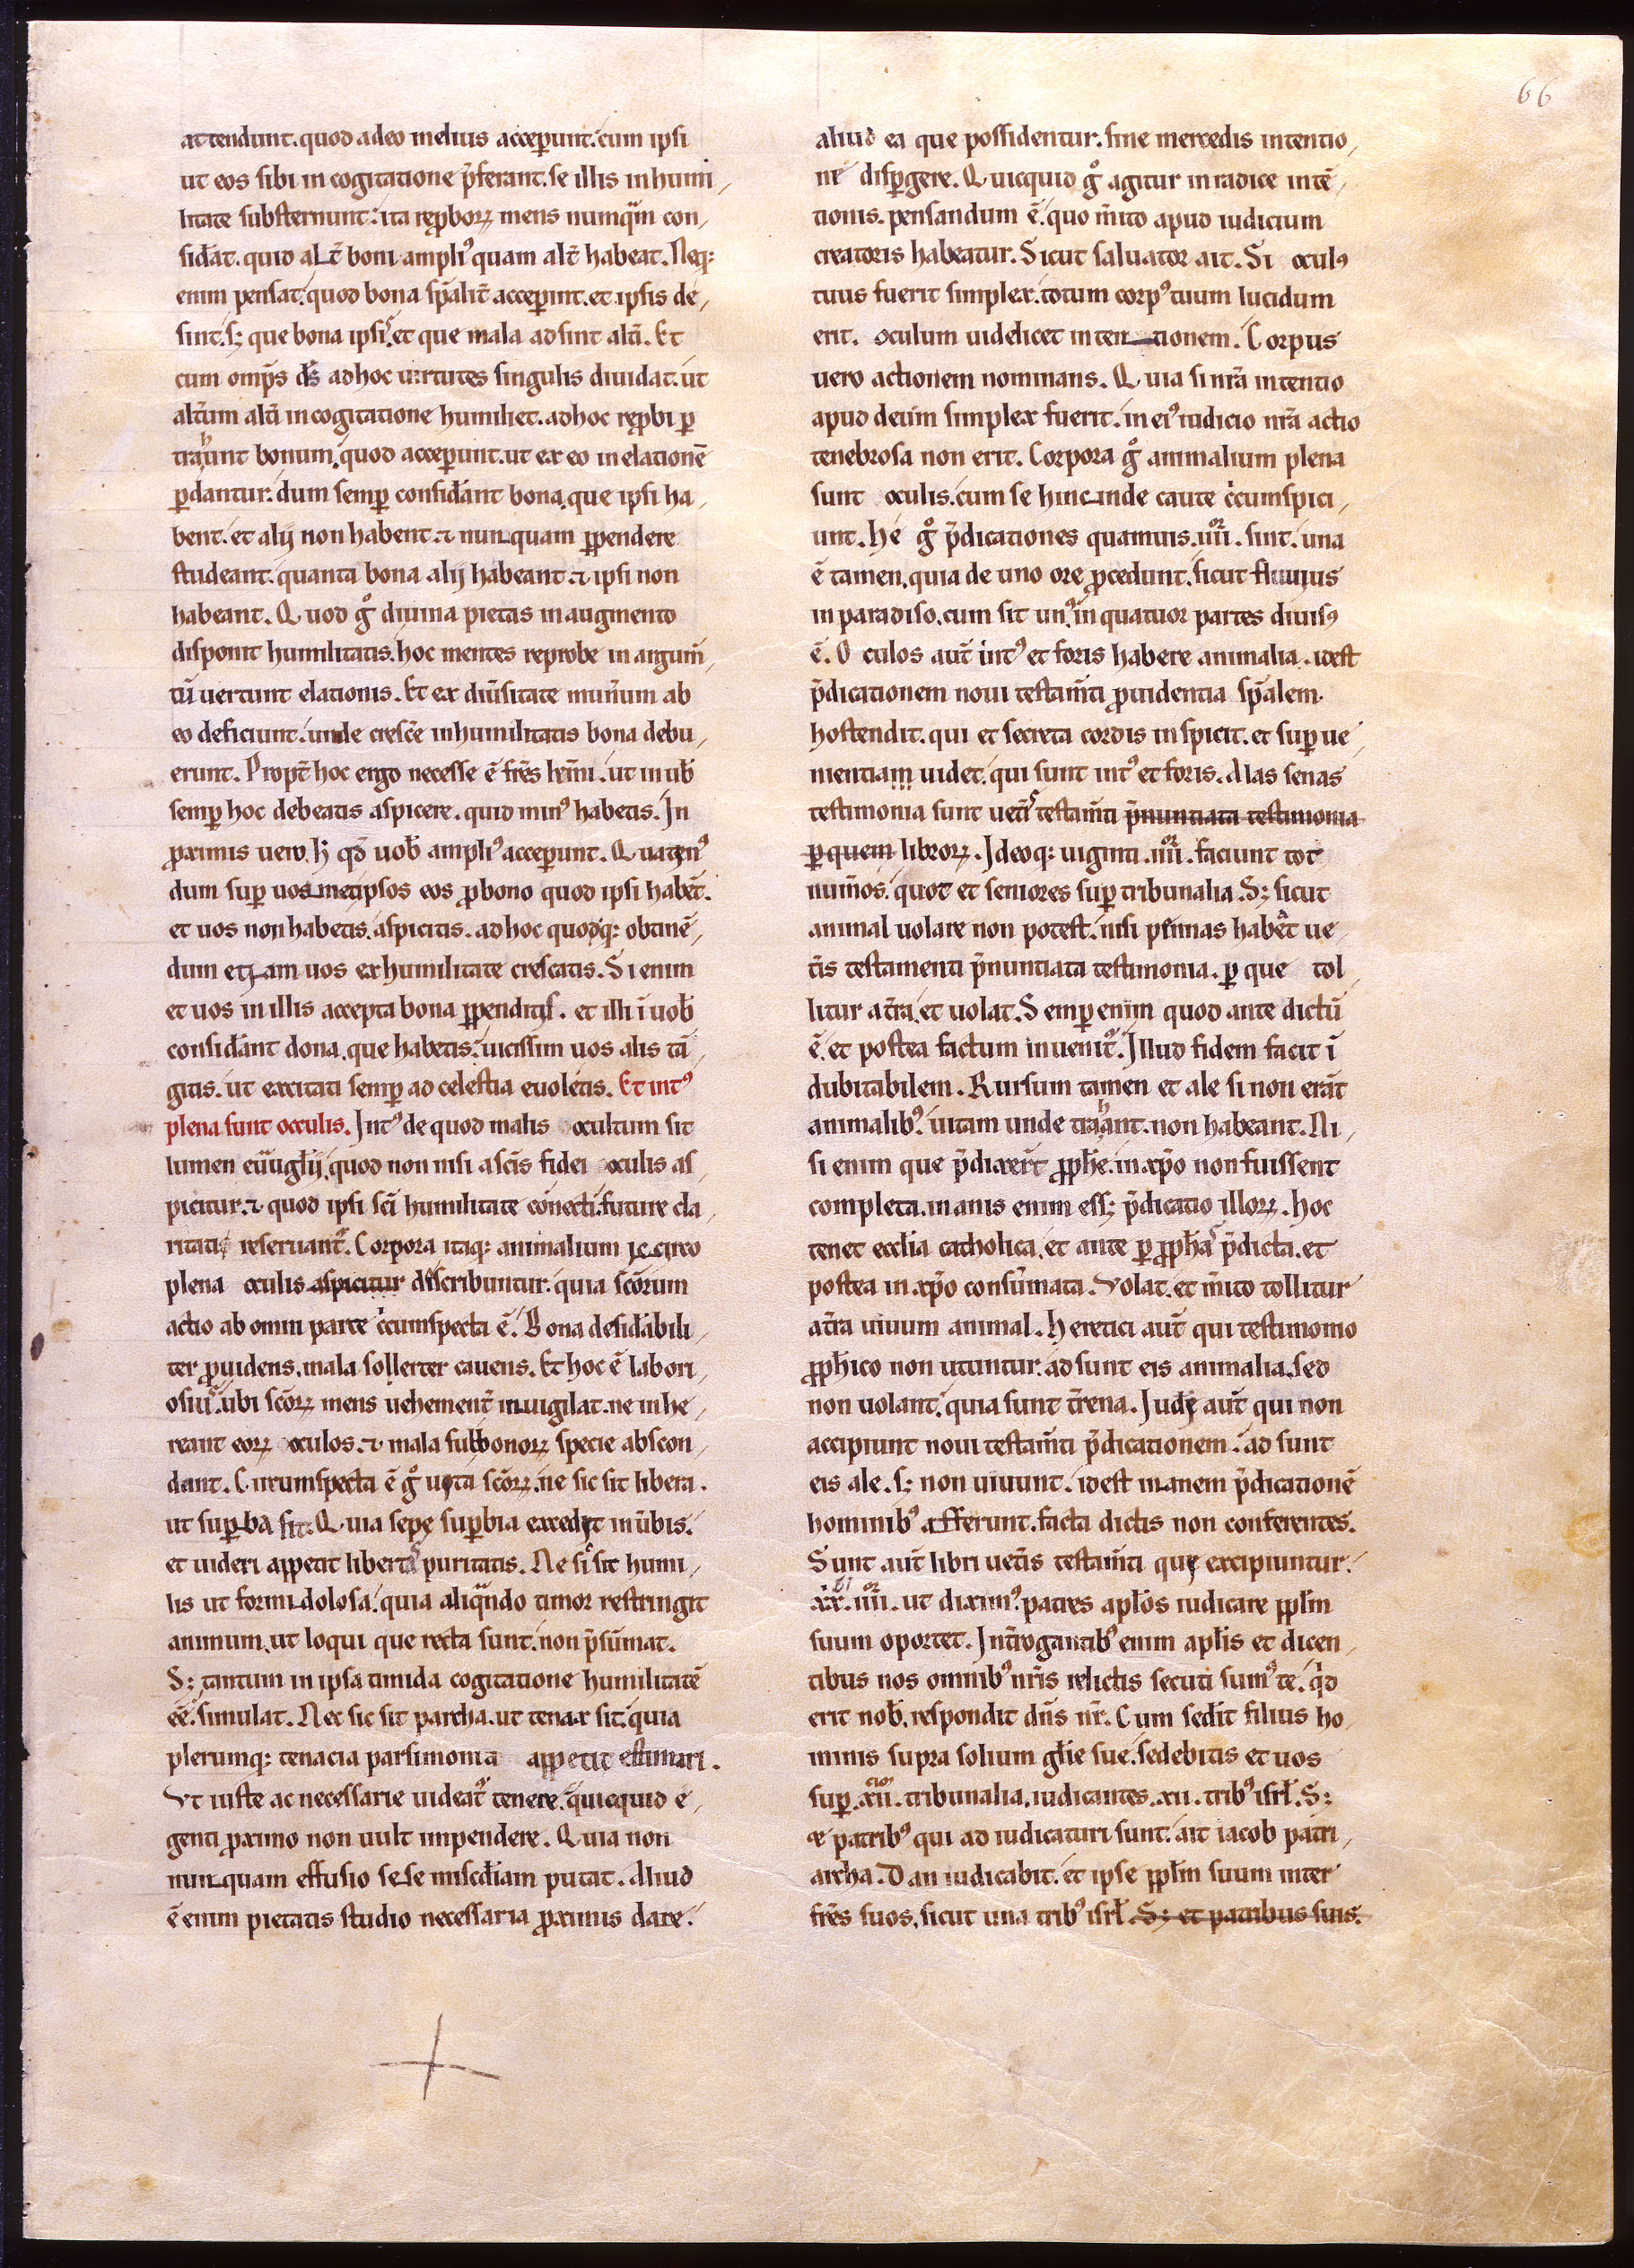 66
attendunt. quod adeo melius acceperunt. cum ipsi
ut eos sibi in cogitatione p̄ferant. se illis in humi,
litate substernunt: ita reproboꝝ mens numquam con,
sid̄at. quid alt̄ boni ampliꝰ quam alt̄ habeat. Neqꝫ
enim pensat. quod bona sp̄alit̄ acceperint. et ipsis de,
sint. sꝫ que bona ipsi, et que mala adsint alīi. Et
cum omp̄s d̄s ad hoc uirtutes singulis diuidat. ut
alt̄um alt̄i in cogitatione humiliet. ad hoc reprobi ꝑ
trahunt bonum, quod acceperunt. ut ex eo in elationē
ꝑdantur. dum semꝑ consid̄ant bona, que ipsi ha,
bent. et alij non habent. ⁊ nunquam ꝑpendere
studeant. quanta bona alij habeant ⁊ ipsi non
habeant. Quod gͦ diuina pietas in augmento
disponit humilitatis. hoc mentes reprobe in argum̄,
tū uertunt elationis. Et ex diūsitate mun̄um ab
eo deficiunt. unde cresce͂ in humilitatis bona debu,
erunt. Propt̄ hoc ergo necesse ē fr̄s kr̄mi. ut in uob̄
semꝑ hoc debeatis aspicere. quid minꝰ habetis. In
ꝓximis uero. h̄ qd̄ uob̄ ampliꝰ acceperunt. Quatenꝰ
dum suꝑ uosmetipsos eos ꝓ bono quod ipsi habēt.
et uos non habetis. aspicitis. ad hoc quoqꝫ obtinē,
dum etiam uos ex humilitate crescatis. Si enim
et uos in illis accepta bona ꝑpenditis. et illi ī uob̄
consid̄ant dona, que habetis. uicissim uos alis tā,
gitis. ut excitati semꝑ ad celestia euoletis. Et intꝰ
plena sunt occulis. Intꝰ de quod malis occultum sit
lumen euuḡlij, quod non nisi a sc̄is fidei oculis as,
picitur. ⁊ quod ipsi sc̄i humilitate conecti. future cla,
ritati reseruantᷣ. Corpora itaqꝫ animalium iccirco
plena oculis aspicitur discribuntur. quia sc̄orum
actio ab omni parte c̄cumspecta ē. Bona desid̄abili,
ter ꝓuidens, mala sollerter cauens. Et hoc ē labori,
osiꝰ. ubi sc̄oꝝ mens uehement̄ inuigilat. ne in he,
reant eoꝝ oculos. ⁊ mala sub bonoꝝ specie abscon,
dant. Circumspecta ē gͦ uita sc̄oꝝ. ne sic sit libera.
ut suꝑba sit. Quia sepe suꝑbia excedit in ūbis.
et uideri appetit libertas puritatis. Ne sic sit humi,
lis ut formidolosa. quia aliquando timor restringit
animum, ut loqui que recta sunt. non p̄sumat.
Sꝫ tantum in ipsa timida cogitatione humilitatē
eē. simulat. Nec sic sit parcha. ut tenax sit. quia
plerumqꝫ tenacia parsimonia appetit estimari.
Vt iuste ac necessarie uideatᷣ tenere. quicquid e,
genti ꝓximo non uult impendere. Quia non
nunquam effusio sese misc̄diam putat. Aliud
ē enim pietatis studio necessaria ꝓximis dare.
aliud ea que possidentur. sine mercedis intentio,
ne disꝑgere. Quicquid gͦ agitur in radice intē,
tionis. pensandum ē. quo m̄ito apud iudicium
creatoris habeatur. Sicut saluator ait. Si oculꝰ
tuus fuerit simplex. totum corpꝰ tuum lucidum
erit. oculum uidelicet intentionem. Corpus
uero actionem nominans. Quia si nr̄a intentio
apud deum simplex fuerit. in eiꝰ iudicio nr̄a actio
tenebrosa non erit. Corpora gͦ animalium plena
sunt oculis. cum se hinc inde caute c̄cumspici,
unt. He gͦ p̄dicationes quamuis. iiiior. sint. una
ē tamen, quia de uno ore ꝓcedunt. sicut fluuius
in paradiso, cum sit unꝰ, in quatuor partes diuisꝰ
ē. Oculos aut̄ intꝰ et foris habere animalia. idest
p̄dicationem noui testam̄ti ꝓuidentia sp̄alem
hostendit. qui et secreta cordis inspicit. et suꝑue,
nientiam uidet. qui sunt intꝰ et foris. Alas senas
testimonia sunt uet̄is testam̄ti p̄nuntiata testimonia
per quem libroꝝ. Ideoqꝫ uiginti .iiiior. faciunt tot
num̄os. quot et seniores suꝑ tribunalia. Sꝫ sicut
animal uolare non potest. nisi pennas habeat ue,
t̄is testamenti p̄nuntiata testimonia. ꝑ que tol,
litur a t̄ra, et uolat. Semꝑ enim quod ante dictū
ē. et postea factum inuenitᷣ. Illud fidem facit ī
dubitabilem. Rursum tamen et ale si non erāt
animalibꝰ. uitam unde trahant. non habeant. Ni,
si enim que p̄dixer̄t ꝓph̄e, in xp̄o non fuissent
completa. inanis enim essꝫ p̄dicatio illoꝝ. hoc
tenet eccl̄ia catholica. et ante ꝑ ꝓph̄as p̄dicta. et
postea in xp̄o consūmata. Volat. et m̄ito tollitur
a t̄ra uiuum animal. Heretici aut̄ qui testimonio
ꝓph̄ico non utuntur. adsunt eis animalia, sed
non uolant. quia sunt t̄rena. Iudei aut̄ qui non
accipiunt noui testam̄ti p̄dicationem. ad sunt
eis ale. sꝫ non uiuunt. idest inanem p̄dicationē
hominibꝰ afferunt. facta dictis non conferentes.
Sunt aut̄ libri uet̄is testam̄ti que excipiuntur.
xx.iiiior. ut diximꝰ. patres apl̄os iudicare ppl̄m
suum oportet. Int̄rogantibꝰ enim apl̄is et dicen,
tibus nos omnibꝰ nr̄is relictis secuti sumꝰ te. qd̄
erit nob̄, respondit dn̄s nr̄. Cum sed̄it filius ho,
minis supra solium gl̄ie sue. sedebitis et uos
suꝑ .xii. tribunalia, iudicantes .xii. tribꝰ isrl̄. Sꝫ
⁊ patribꝰ qui ad iudicaturi sunt. ait iacob patri,
archa. Dan iudicabit. et ipse ppl̄m suum inter
fr̄es suos, sicut una tribꝰ isrl̄. Sꝫ et patribus suis.